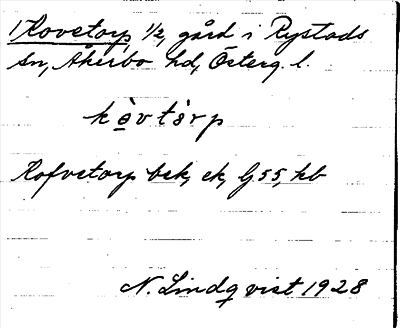 1 Kovetorp 1/2, gård i Rystads
sn, Åkerbo hd, Österg. l.
kòvtòrp
Kofvetorp bek, ek, G55, hb
N. Lindqvist 1928